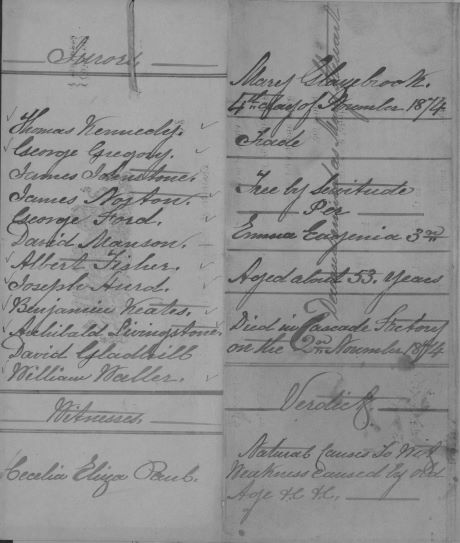 Jurors
Thomas Kennedy.
George Gregory.
James Johnstone.
James Norton.
George Ford.
David Manson.
Albert Fisher.
Joseph Hurd.
Benjamin Keates.
Archibald Livingstone.
David Gladwill
William Waller.
Witnesses
Cecelia Eliza Paul.
Mary Glazebrook.
4th day of November 1874
Trade
Free by Servitude
Per
Emma Eugenia 3rd
Aged about 53. Years
Died in Cascade Factory
on the 2nd November 1874
Verdict
Natural Causes To Wit
Weakness caused by old
Age &c &c.